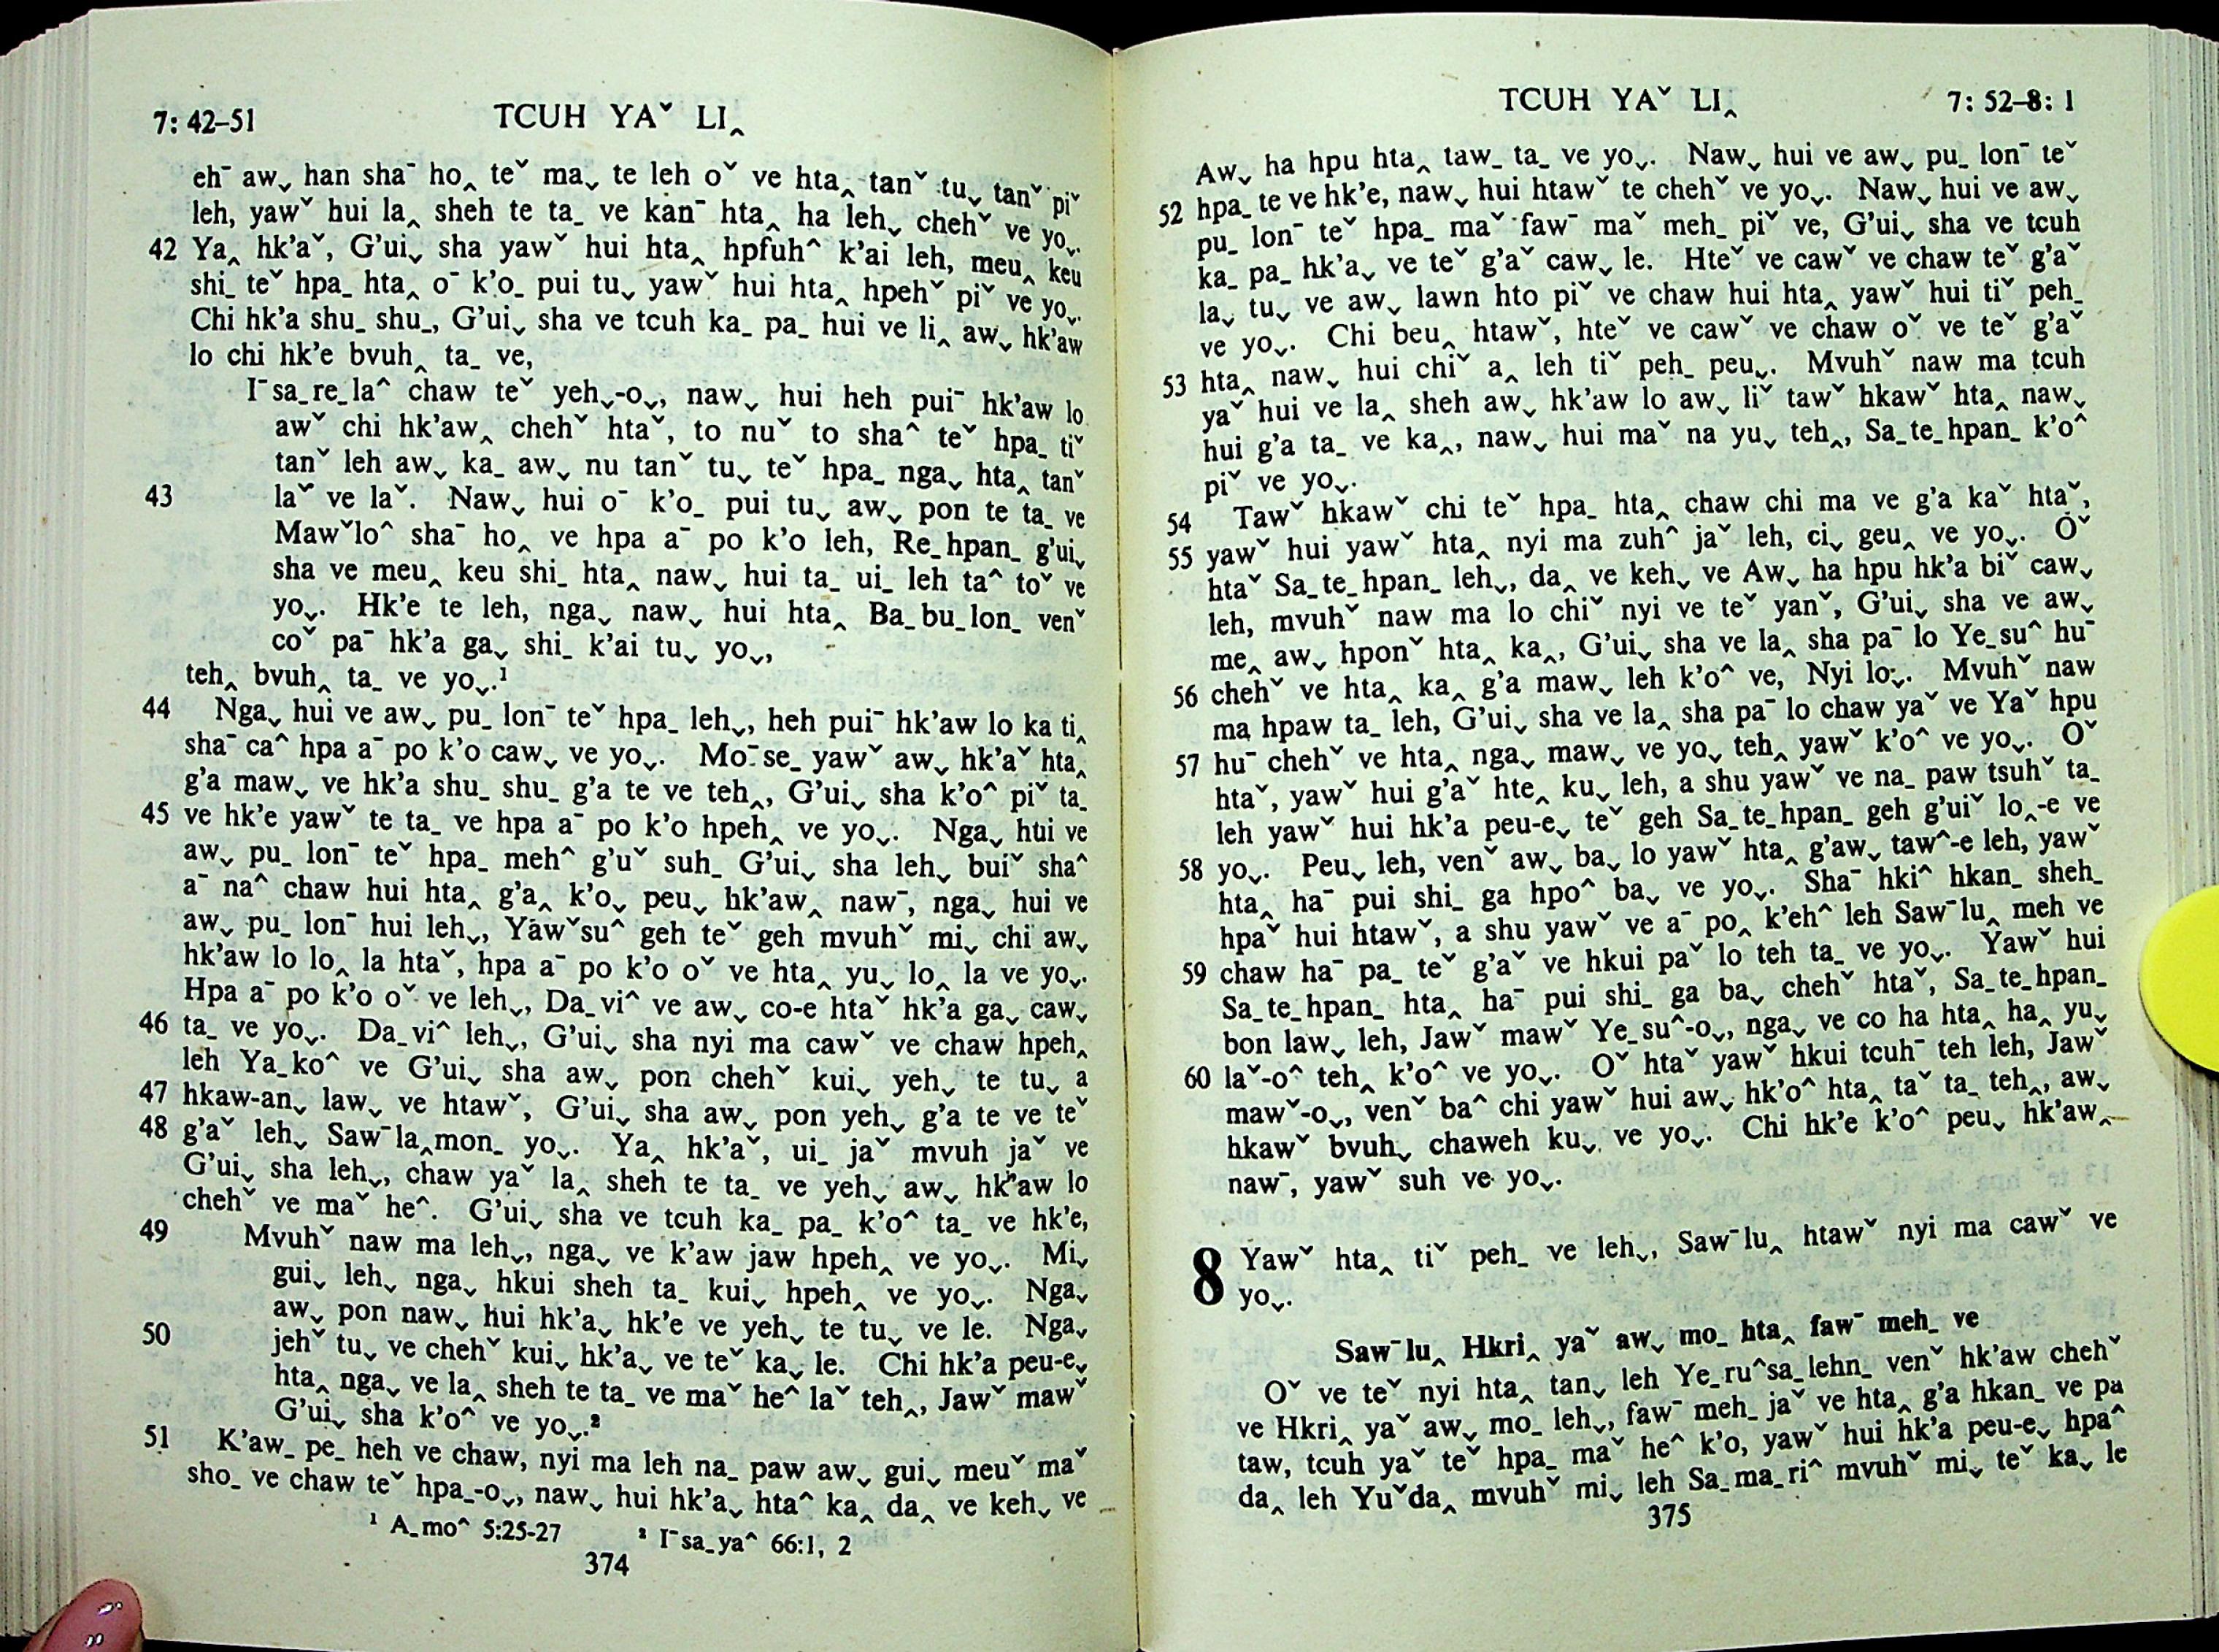 7: 42–51
TCUH YAˇ LI‸
eh¯ aw˯ han sha¯ ho‸ teˇ ma˯ te leh oˇ ve hta‸ tanˇ tu˯ tanˇ piˇ
leh, yawˇ hui la‸ sheh te ta_ ve kan¯ hta‸ ha leh˯ chehˇ ve yo˯.
42 Ya‸ hk'aˇ, G'ui˯ sha yawˇ hui hta‸ hpfuh^ k'ai leh, meu‸ keu
shi_ teˇ hpa_ hta‸ o¯ k'o_ pui tu˯ yawˇ hui hta‸ hpehˇ piˇ ve yo˯.
Chi hk'a shu_ shu_, G'ui˯ sha ve tcuh ka_ pa_ hui ve li‸ aw˯ hk'aw
lo chi hk'e bvuh‸ ta_ ve,
I¯sa_re_la^ chaw teˇ yeh˯-o˯, naw˯ hui heh pui¯ hk'aw lo
awˇ chi hk'aw‸ chehˇ htaˇ, to nuˇ to sha^ teˇ hpa_ tiˇ
tanˇ leh aw˯ ka_ aw˯ nu tanˇ tu˯ teˇ hpa_ nga˯ hta‸ tanˇ
43 laˇ ve laˇ. Naw˯ hui o¯ k'o_ pui tu˯ aw˯ pon te ta_ ve
Mawˇlo^ sha¯ ho‸ ve hpa a¯ po k'o leh, Re_hpan_ g'ui˯
sha ve meu‸ keu shi_ hta‸ naw˯ hui ta_ ui_ leh ta^ toˇ ve
yo˯. Hk'e te leh, nga˯ naw˯ hui hta‸ Ba_bu_lon_ venˇ
coˇ pa¯ hk'a ga˯ shi_ k'ai tu˯ yo˯,
teh‸ bvuh‸ ta_ ve yo˯.¹
44 Nga˯ hui ve aw˯ pu_ lon¯ teˇ hpa_ leh˯, heh pui¯ hk'aw lo ka ti‸
sha¯ ca^ hpa a¯ po k'o caw˯ ve yo˯. Mo¯se_ yawˇ aw˯ hk'aˇ hta‸
g'a maw˯ ve hk'a shu_ shu_ g'a te ve teh‸, G'ui˯ sha k'o^ piˇ ta_
45 ve hk'e yawˇ te ta_ ve hpa a¯ po k'o hpeh‸ ve yo˯. Nga˯ hui ve
aw˯ pu_ lon¯ teˇ hpa_ meh^ g'uˇ suh_ G'ui˯ sha leh˯ buiˇ sha^
a¯ na^ chaw hui hta‸ g'a‸ k'o˯ peu˯ hk'aw‸ naw¯, nga˯ hui ve
aw˯ pu_ lon¯ hui leh˯, Yawˇsu^ geh teˇ geh mvuhˇ mi˯ chi aw˯
hk'aw lo lo‸ la htaˇ, hpa a¯ po k'o oˇ ve hta‸ yu˯ lo‸ la ve yo˯.
Hpa a¯ po k'o oˇ ve leh˯, Da_vi^ ve aw˯ co-e htaˇ hk'a ga˯ caw˯
46 ta_ ve yo˯. Da_vi^ leh˯, G'ui˯ sha nyi ma cawˇ ve chaw hpeh‸
leh Ya_ko^ ve G'ui˯ sha aw˯ pon chehˇ kui˯ yeh˯ te tu˯ a
47 hkaw-an˯ law˯ ve htawˇ, G'ui˯ sha aw˯ pon yeh˯ g'a te ve teˇ
48 g'aˇ leh˯ Saw¯la‸mon_ yo˯. Ya‸ hk'aˇ, ui_ jaˇ mvuh jaˇ ve
G'ui˯ sha leh˯, chaw yaˇ la‸ sheh te ta_ ve yeh˯ aw˯ hk'aw lo
chehˇ ve maˇ he^. G'ui˯ sha ve tcuh ka_ pa_ k'o^ ta_ ve hk'e,
49 Mvuhˇ naw ma leh˯, nga˯ ve k'aw jaw hpeh‸ ve yo˯. Mi˯
gui˯ leh˯ nga˯ hkui sheh ta_ kui˯ hpeh‸ ve yo˯. Nga˯
aw˯ pon naw˯ hui hk'a˯ hk'e ve yeh˯ te tu˯ ve le. Nga˯
50 jehˇ tu˯ ve chehˇ kui˯ hk'a˯ ve teˇ ka˯ le. Chi hk'a peu-e˯
hta‸ nga˯ ve la‸ sheh te ta_ ve maˇ he^ laˇ teh‸, Jawˇ mawˇ
G'ui˯ sha k'o^ ve yo˯.²
51 K'aw_ pe_ heh ve chaw, nyi ma leh na_ paw aw˯ gui˯ meuˇ maˇ
sho_ ve chaw teˇ hpa_-o˯, naw˯ hui hk'a˯ hta^ ka‸ da‸ ve keh˯ ve
¹ A_mo^ 5:25-27 ² I¯sa_ya^ 66:1, 2
374
TCUH YAˇ LI‸
7: 52–8: 1
Aw˯ ha hpu hta‸ taw_ ta_ ve yo˯. Naw˯ hui ve aw˯ pu_ lon¯ teˇ
52 hpa_ te ve hk'e, naw˯ hui htawˇ te chehˇ ve yo˯. Naw˯ hui ve aw˯
pu_ lon¯ teˇ hpa_ maˇ faw¯ maˇ meh_ piˇ ve, G'ui˯ sha ve tcuh
ka_ pa_ hk'a˯ ve teˇ g'aˇ caw˯ le. Hteˇ ve cawˇ ve chaw teˇ g'aˇ
la˯ tu˯ ve aw˯ lawn hto piˇ ve chaw hui hta‸ yawˇ hui tiˇ peh_
ve yo˯. Chi beu‸ htawˇ, hteˇ ve cawˇ ve chaw oˇ ve teˇ g'aˇ
53 hta‸ naw˯ hui chiˇ a‸ leh tiˇ peh_ peu˯. Mvuhˇ naw ma tcuh
yaˇ hui ve la‸ sheh aw˯ hk'aw lo aw˯ liˇ tawˇ hkawˇ hta‸ naw˯
hui g'a ta_ ve ka‸, naw˯ hui maˇ na yu˯ teh‸, Sa_te_hpan_ k'o^
piˇ ve yo˯.
54 Tawˇ hkawˇ chi teˇ hpa_ hta‸ chaw chi ma ve g'a kaˇ htaˇ,
55 yawˇ hui yawˇ hta‸ nyi ma zuh^ jaˇ leh, ci˯ geu‸ ve yo˯. Oˇ
htaˇ Sa_te_hpan_ leh˯, da‸ ve keh˯ ve Aw˯ ha hpu hk'a biˇ caw˯
leh, mvuhˇ naw ma lo chiˇ nyi ve teˇ yanˇ, G'ui˯ sha ve aw˯
me‸ aw˯ hponˇ hta‸ ka‸, G'ui˯ sha ve la‸ sha pa¯ lo Ye_su^ hu¯
56 chehˇ ve hta‸ ka‸ g'a maw˯ leh k'o^ ve, Nyi lo˯. Mvuhˇ naw
ma hpaw ta_ leh, G'ui˯ sha ve la‸ sha pa¯ lo chaw yaˇ ve Yaˇ hpu
57 hu¯ chehˇ ve hta‸ nga˯ maw˯ ve yo˯ teh‸ yawˇ k'o^ ve yo˯. Oˇ
htaˇ, yawˇ hui g'aˇ hte‸ ku˯ leh, a shu yawˇ ve na_ paw tsuhˇ ta_
leh yawˇ hui hk'a peu-e˯ teˇ geh Sa_te_hpan_ geh g'uiˇ lo‸-e ve
58 yo˯. Peu˯ leh, venˇ aw˯ ba˯ lo yawˇ hta‸ g'aw˯ taw^-e leh, yawˇ
hta‸ ha¯ pui shi_ ga hpo^ ba˯ ve yo˯. Sha¯ hki^ hkan_ sheh_
hpaˇ hui htawˇ, a shu yawˇ ve a¯ po‸ k'eh^ leh Saw¯lu‸ meh ve
59 chaw ha¯ pa_ teˇ g'aˇ ve hkui paˇ lo teh ta_ ve yo˯. Yawˇ hui
Sa_te_hpan_ hta‸ ha¯ pui shi_ ga ba˯ chehˇ htaˇ, Sa_te_hpan_
bon law˯ leh, Jawˇ mawˇ Ye_su^-o˯, nga˯ ve co ha hta‸ ha‸ yu˯
60 laˇ-o^ teh‸ k'o^ ve yo˯. Oˇ htaˇ yawˇ hkui tcuh¯ teh leh, Jawˇ
mawˇ-o˯, venˇ ba^ chi yawˇ hui aw˯ hk'o^ hta‸ taˇ ta_ teh‸, aw˯
hkawˇ bvuh˯ chaweh ku˯ ve yo˯. Chi hk'e k'o^ peu˯ hk'aw‸
naw¯, yawˇ suh ve yo˯.
8 Yawˇ hta‸ tiˇ peh_ ve leh˯, Saw¯lu‸ htawˇ nyi ma cawˇ ve
yo˯.
Saw¯lu‸ Hkri‸ yaˇ aw˯ mo_ hta‸ faw¯ meh_ ve
Oˇ ve teˇ nyi hta‸ tan˯ leh Ye_ru^sa_lehn_ venˇ hk'aw chehˇ
ve Hkri‸ yaˇ aw˯ mo_ leh˯, faw¯ meh_ jaˇ ve hta‸ g'a hkan_ ve pa
taw, tcuh yaˇ teˇ hpa_ maˇ he^ k'o, yawˇ hui hk'a peu-e˯ hpa^
da‸ leh Yuˇda‸ mvuhˇ mi˯ leh Sa_ma_ri^ mvuhˇ mi˯ teˇ ka˯ le
375